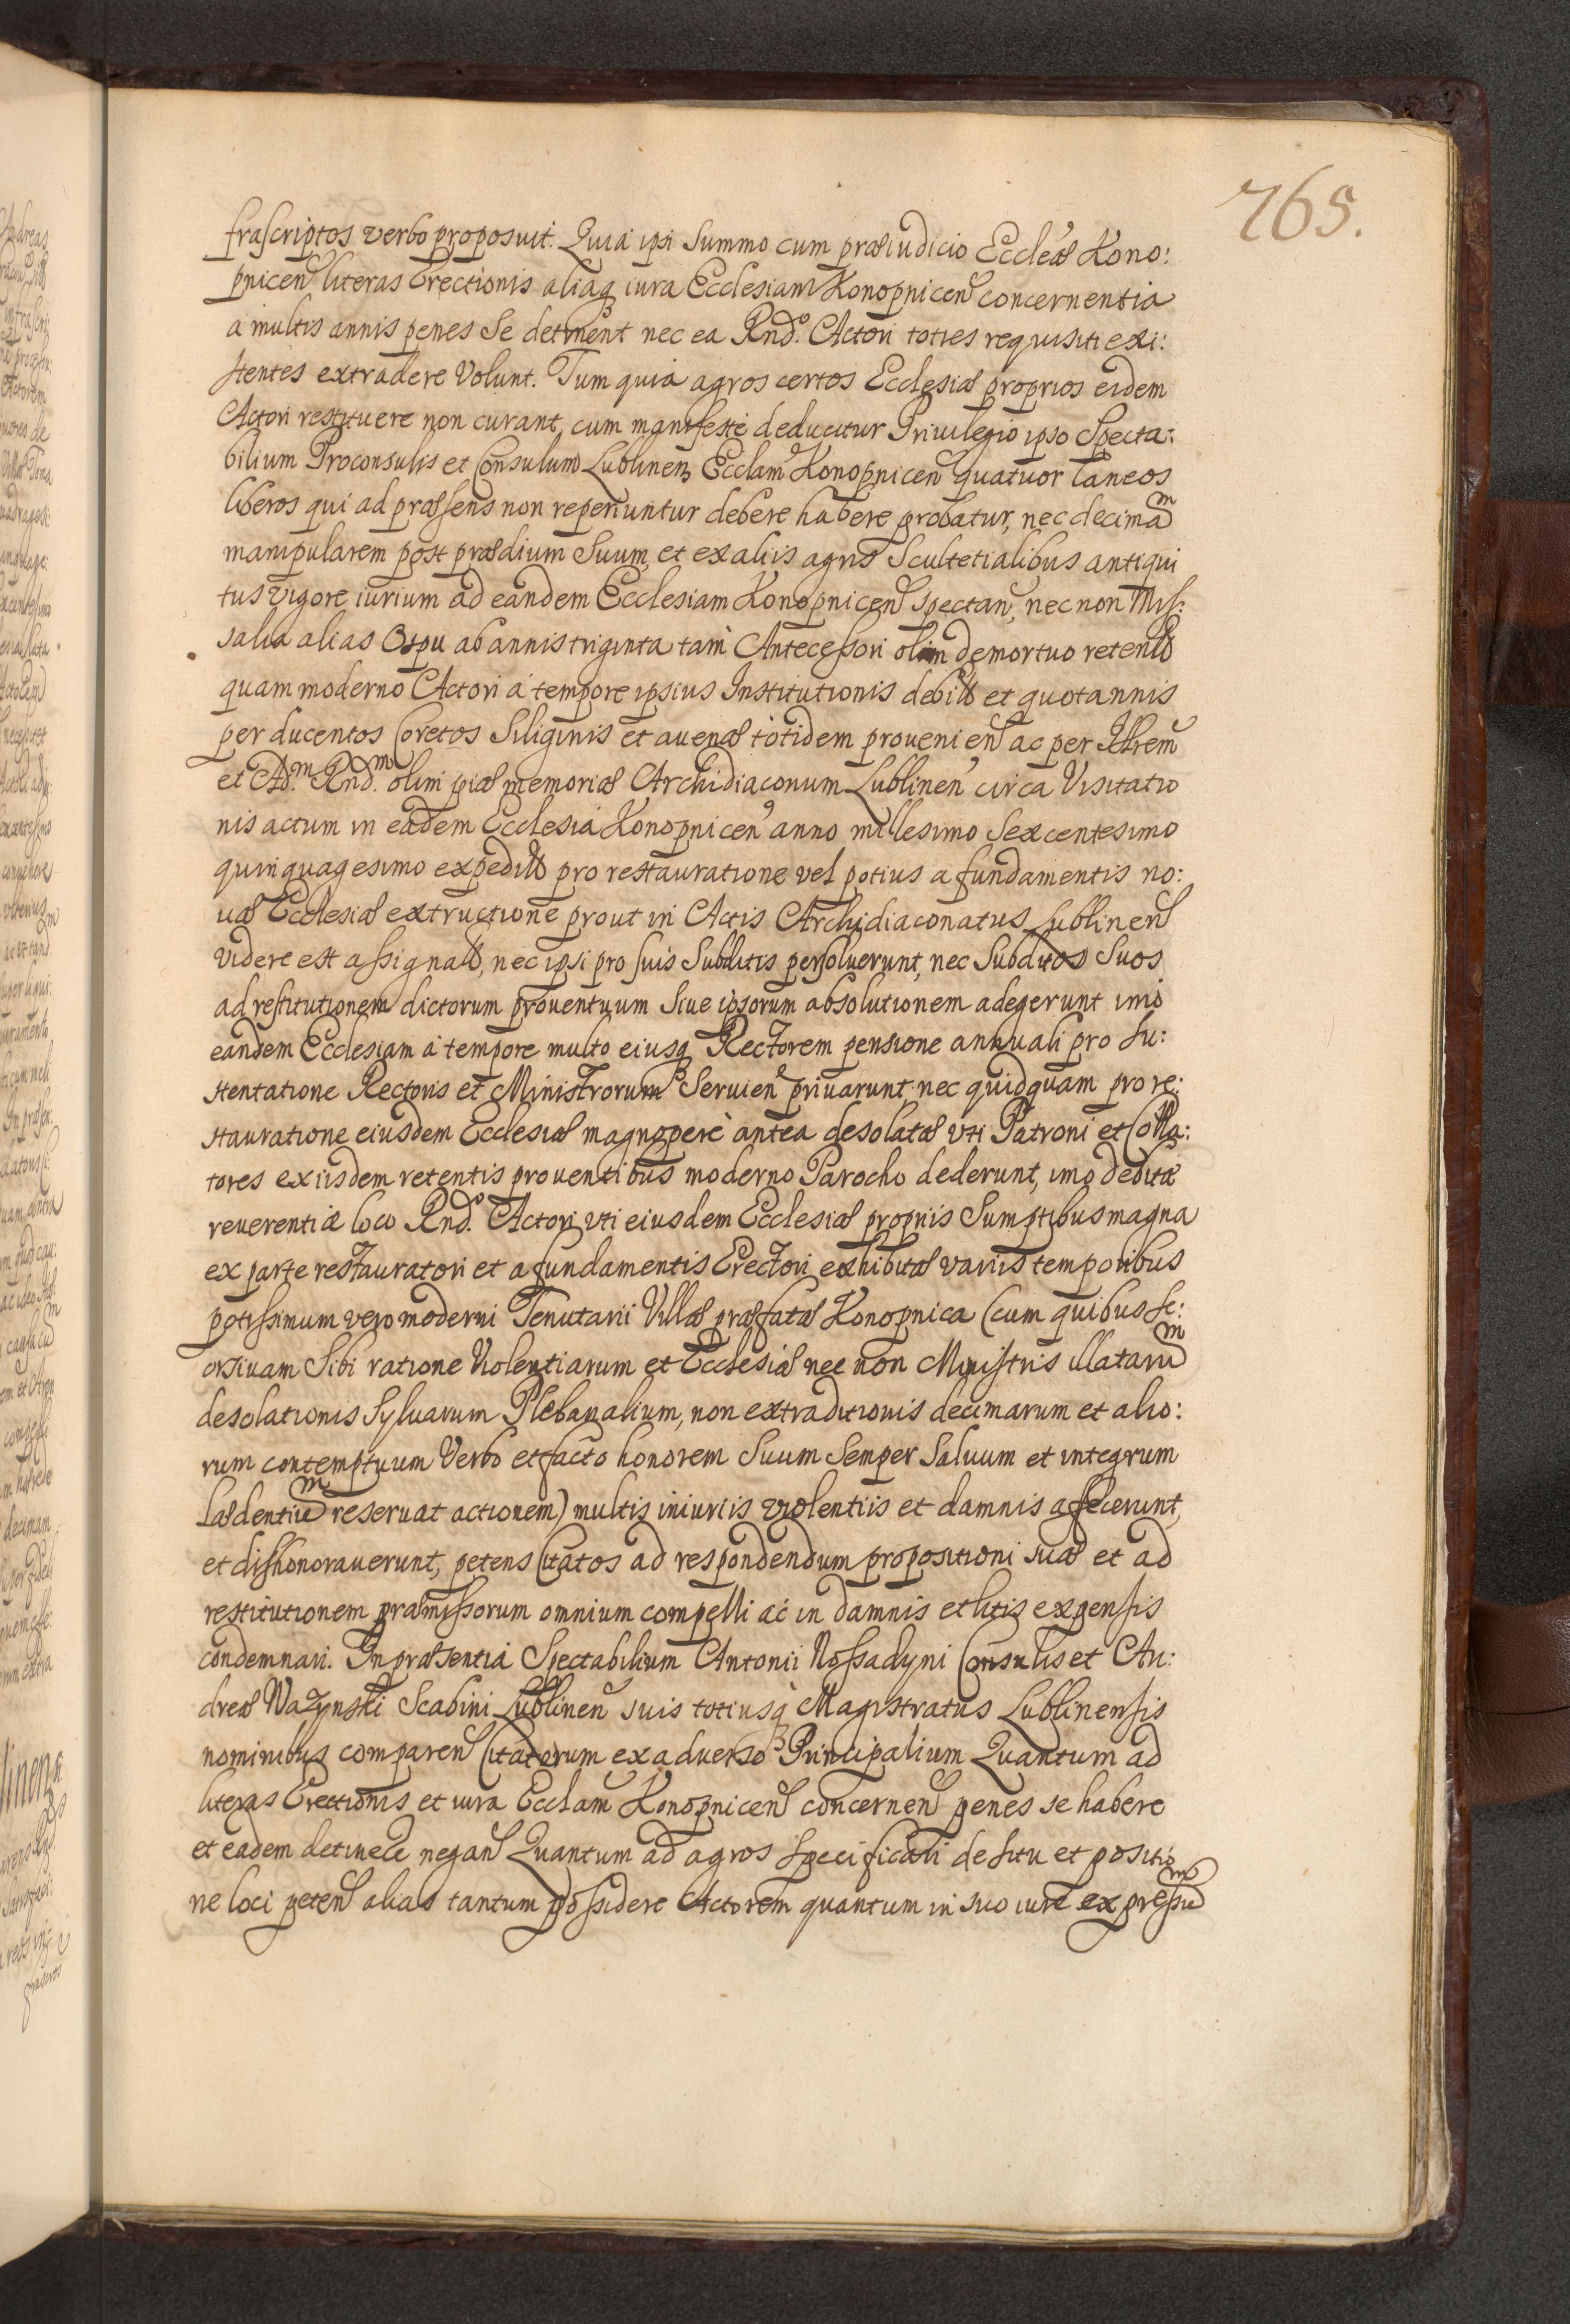 765.
frascriptos verbo proposuit. Quia ipsi Summo cum præiudicio Ecclæ Kono:
pnicen literas Erectionis aliaq iura Ecclesiam Konopnicen concernentia
a multis annis penes Se detinent nec ea Rndo. Actori toties requisiti exi:
stentes extradere Volunt. Tum quia agros certos Ecclesiæ proprios eidem
Actori restituere non curant, cum manifeste deducitur Priuilegio ipso Specta:
bilium Proconsulis et Consulum Lublinen Ecclam Konopnicen quatuor laneos
liberos qui ad præsens non reperiuntur debere habere probatur, nec decimam
manipularem post prædium Suum, et ex aliis agris Scultetialibus antiqui
tus vigore iurium ad eandem Ecclesiam Konopnicen spectan, nec non Mis:
salia alias Ospu ab annis triginta tam Antecessori olim demortuo retenta
quam moderno Actori a tempore ipsius Institutionis debita et quotannis
per ducentos Coretos Siliginis et auenæ totidem prouenien ac per Illrem
et Adm. Rndm. olim piæ memoriæ Archidiaconum Lublinen circa Visitatio
nis actum in eadem Ecclesia Konopnicen anno millesimo Sexcentesimo
quinquagesimo expedita pro restauratione vel potius a fundamentis no:
uæ Ecclesiæ extructione prout in Actis Archidiaconatus Lublinen
videre est assignata, nec ipsi pro suis Subditis persoluerunt, nec Subditos Suos
ad restitutionem dictorum prouentuum Siue ipsorum absolutionem adegerunt imo
eandem Ecclesiam a tempore multo eiusq Rectorem pensione annuali pro Su:
stentatione Rectoris et Ministrorum Seruien priuarunt, nec quidquam pro re:
stauratione eiusdem Ecclesiæ magnopere antea desolatæ vti Patroni et Colla:
tores ex iisdem retentis prouentibus moderno Parocho dederunt, imo debitæ
reuerentiæ loco Rndo. Actori vti eiusdem Ecclesiæ propriis Sumptibus magna
ex parte restauratori et a fundamentis Erectori exhibitæ variis temporibus
potissimum vero moderni Tenutarii Villæ præfatæ Konopnica (cum quibus se:
orsiuam Sibi ratione Violentiarum et Ecclesiæ nec non Ministris illatarum
desolationis Syluarum Plebanalium, non extraditionis decimarum et alio:
rum contemptuum Verbo et facto honorem Suum Semper Saluum et integrum
lædentium reseruat actionem) multis iniuriis violentiis et damnis affecerunt,
et dishonorauerunt, petens Citatos ad respondendum propositioni suæ et ad
restitutionem præmissorum omnium compelli ac in damnis et litis expensis
condemnari. In præsentia Spectabilium Antonii Nossadyni Consulis et An:
dreæ Wazynski Scabini Lublinen suis totiusq Magistratus Lublinensis
nominibus comparen Citatorum ex aduerso Principalium Quantum ad
literas Erectionis et iura Ecclam Konopnicen concernen penes se habere
et eadem detinere negan Quantum ad agros specificati de situ et positio
ne loci peten alias tantum possidere Actorem quantum in suo iure expressum